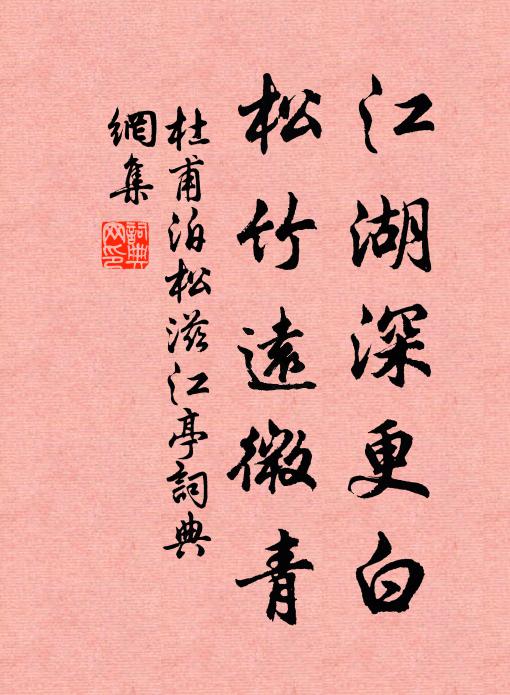 江湖深更白
松竹遠微青
杜甫泊松滋江亭詞典
網集
詞典
网印